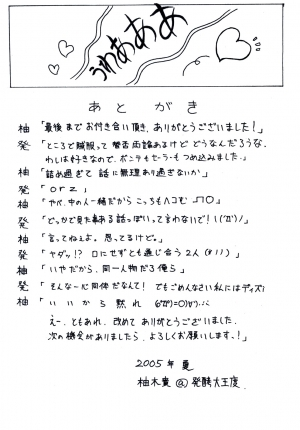 うわぁぁぁ
あとがき
柚「最後までお付き合い頂き、ありがとうございました!」
発「ところで賊服って賛否両論あるけどどうなんだろうな。
わしは好きなので、ボンテもセーラーもつめ込みました。」
柚「詰め過ぎて話に無理あり過ぎないか」
発「orz」
柚「やべ、中の一緒だからこっちもヘコむ_ПО」
発「どっかで見た事ある話っぽいって言わないで!\(゚Д゚)/
柚「言ってねぇよ。思ってるけど。」
発「ヤダッ!? 口にせずとも通じ合う2人(〃//)」
柚「いやだから、同一人物だろ俺ら」
発「そんな~心同体だなんて! でもごめんなさい私にはディズ!
柚「いいから黙れ
えー、ともあれ、改めてありがとうございました。
次の機会がありましたら、よろしくお願いします、!」
2005年 夏
柚木 @ 発酵大王度